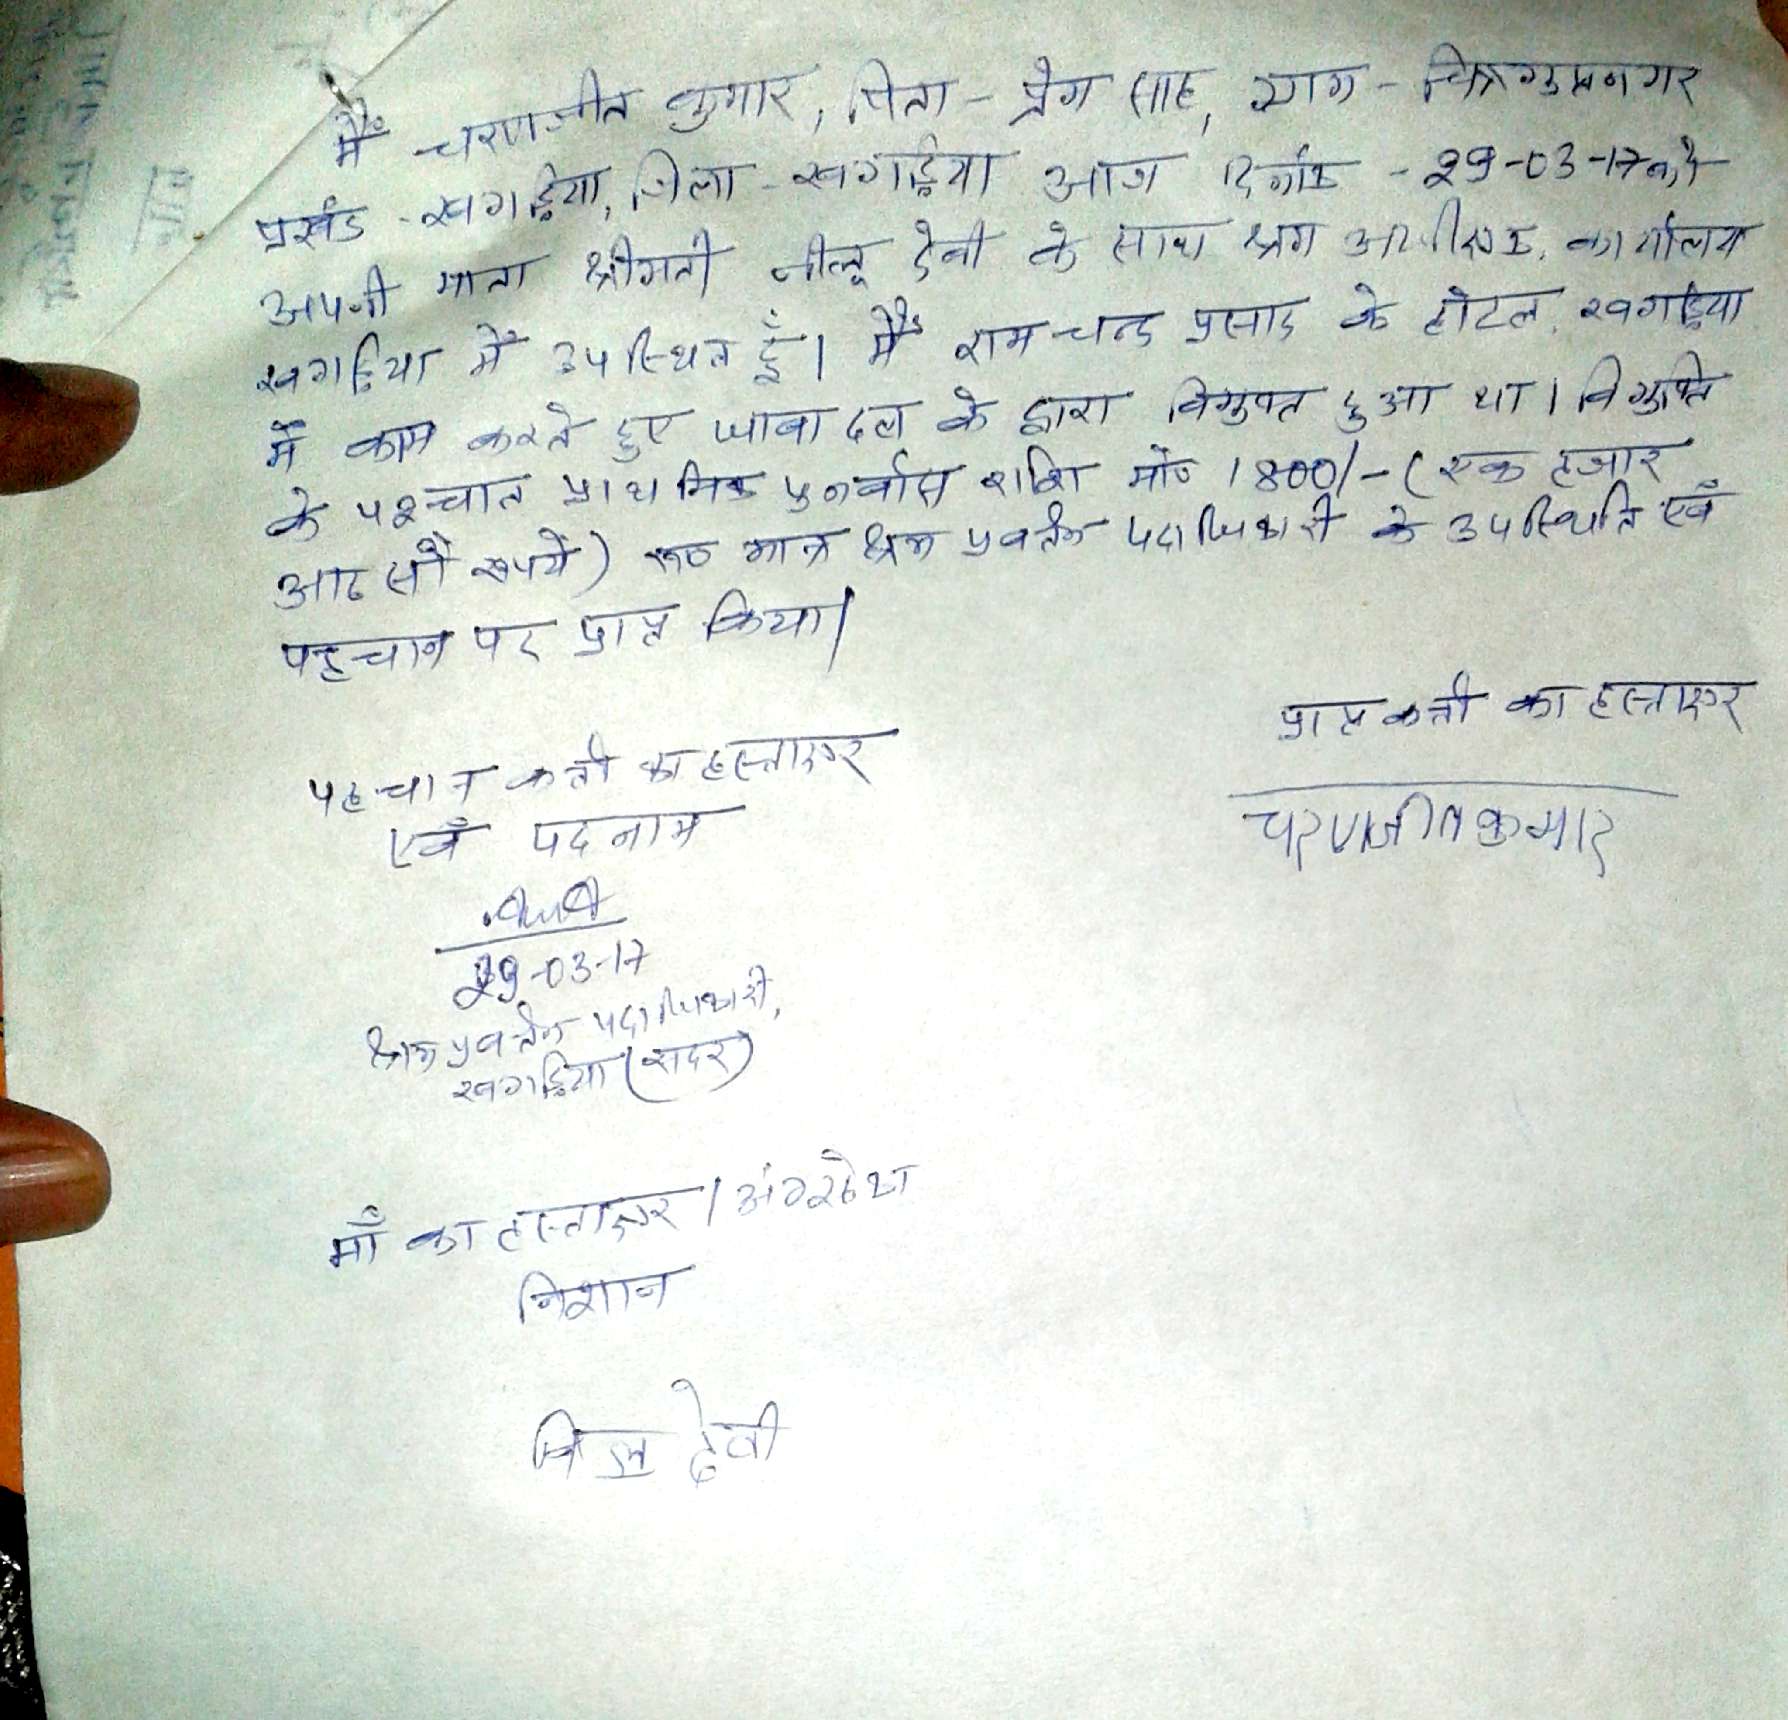 मैं चरणजीत कुमार, पिता - प्रेम साह, ग्राम - चित्रगुप्तनगर
प्रखंड - खगड़िया, जिला - खगड़िया आज दिनांक - 29-03-17 को
अपनी माता श्रीमती नीलू देवी के साथ श्रम अधीक्षक, कार्यालय
खगड़िया में उपस्थित हूँ। मैं रामचन्द्र प्रसाद के होटल, खगड़िया
में काम करते हुए धावा दल के द्वारा विमुक्त हुआ था। विमुक्ति
के पश्चात प्राथमिक पुनर्वास राशि मो० 1800/- (एक हजार
आठ सौ रूपये) रू० मात्र श्रम प्रवर्तन पदाधिकारी के उपस्थिति एवँ
पहचान पर प्राप्त किया।
प्राप्तकर्ता का हस्ताक्षर
चरणजीत कुमार
पहचान कर्ता का हस्ताक्षर
एवँ पदनाम
29-03-17
श्रम प्रवर्तन पदाधिकारी,
खगड़िया (सदर)
माँ का हस्ताक्षर / अंगूठे का
निशान
निलु देवी